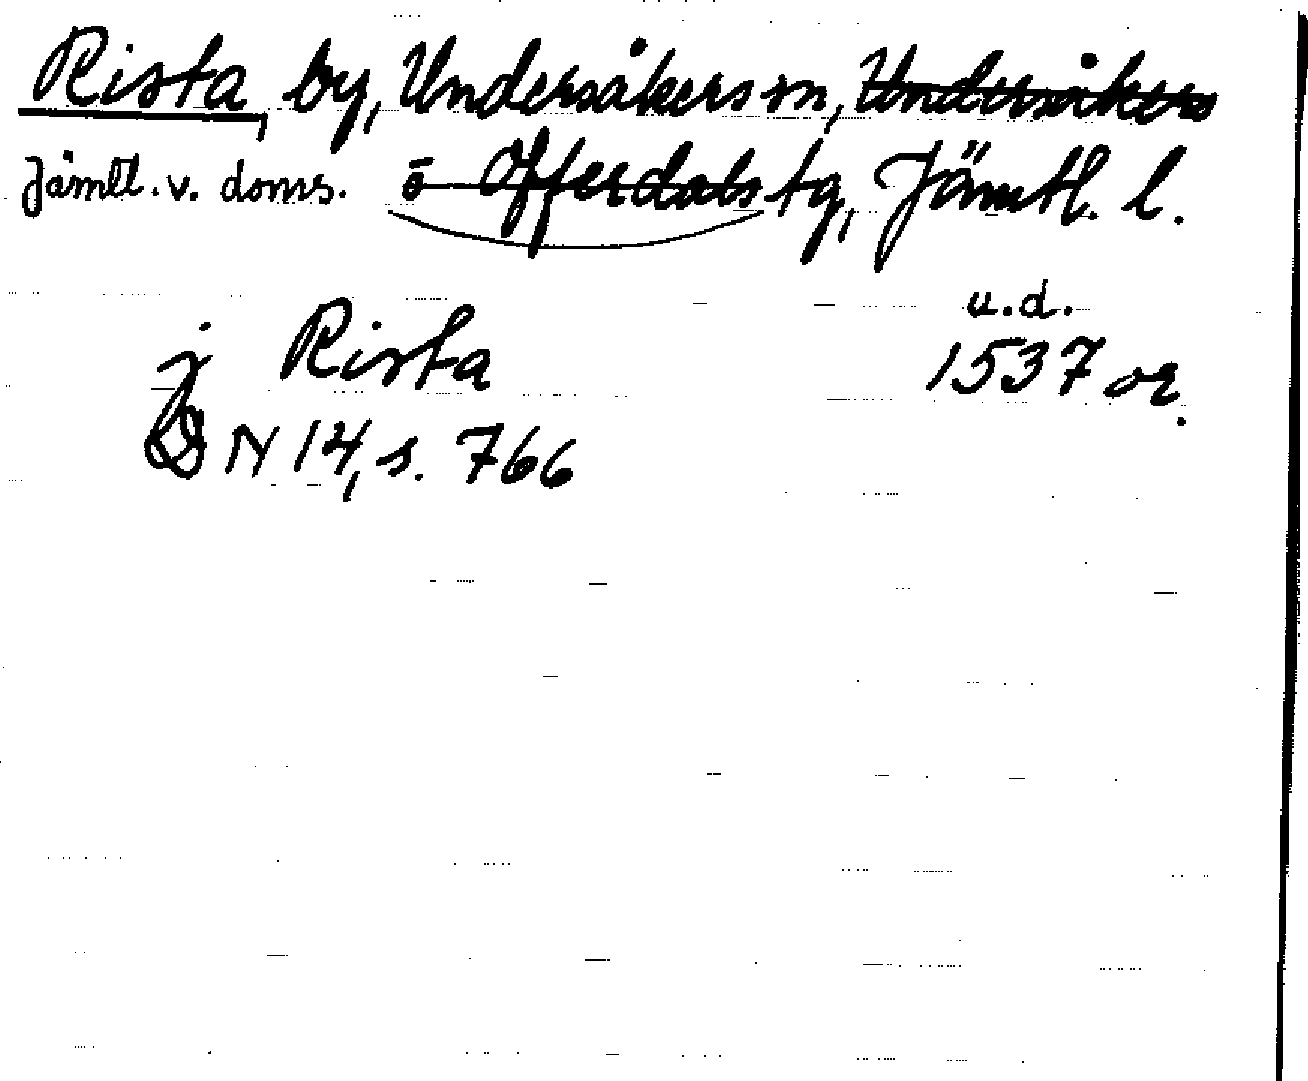 Rista, by, Undersåkers sn, Undersåkers
Jämtl. v. doms. o Offerdals tg, Jämtl. l.
u.d.
j Rista 1537 or.
DN 14, s. 766